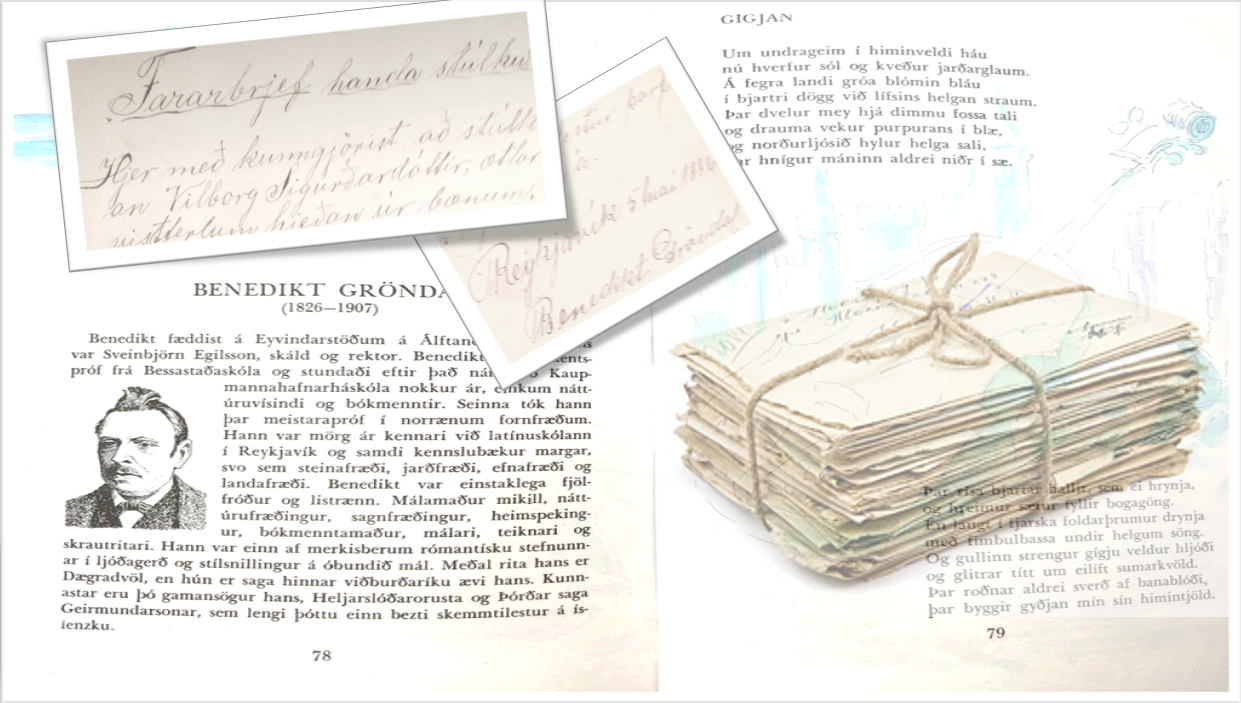 Fararbrjef handa stúlku
Hjer með kunngjörist að stúlk
an Vilborg Sigurðardóttir, ætlar
vistferlum hieðan úr bænum,
þarf
Reykjavík 5 maí 1886
Benedikt Gröndal
BENEDIKT GRÖNDA
(1826—1907)
Benedikt fæddist á Eyvindarstöðum á Álftane
var Sveinbjörn Egilsson, skáld og rektor. Benedikt ents-
próf frá Bessastaðaskóla og stundaði eftir það Kaup-
mannahafnarháskóla nokkur ár, einkum nátt-
úruvísindi og bókmenntir. Seinna tók hann
þar meistarapróf í norrænum fornfræðum.
Hann var mörg ár kennari við latínuskólann
í Reykjavík og samdi kennslubækur margar,
svo sem steinafræði, jarðfræði, efnafræði og
landafræði. Benedikt var einstaklega fjöl-
fróður og listrænn. Málamaður mikill, nátt-
úrufræðingur, sagnfræðingur, heimspeking-
ur, bókmenntamaður, málari, teiknari og
skrautritari. Hann var einn af merkisberum rómantísku stefnunn-
ar í ljóðagerð og stílsnillingur á óbundið mál. Meðal rita hans er
Dægradvöl, en hún er saga hinnar viðburðaríku ævi hans. Kunn-
astar eru þó gamansögur hans, Heljarslóðarorusta og Þórðar saga
Geirmundarsonar, sem lengi þóttu einn bezti skemmtilestur á ís-
lenzku.
78
GIGJAN
Um undrageim í himinveldi háu
nú hverfur sól og kveður jarðarglaum.
Á fegra landi gróa blómin bláu
í bjartri dögg við lífsins helgan straum.
Þar dvelur mey hjá dimmu fossa tali
og drauma vekur purpurans í blæ,
og norðurljósið hylur helga sali,
ar hnígur máninn aldrei niðr í sæ.
Þar rísa bjartar hallir, sem ei hrynja,
og hreimur sætur fyllir bogagöng.
En langt í fjarska foldarþrumur drynja
með fimbulbassa undir helgum söng.
Og gullinn strengur gígju veldur hljóði
og glitrar títt um eilíft sumarkvöld.
Þar roðnar aldrei sverð af banablóði,
þar byggir gyðjan mín sín himintjöld.
79